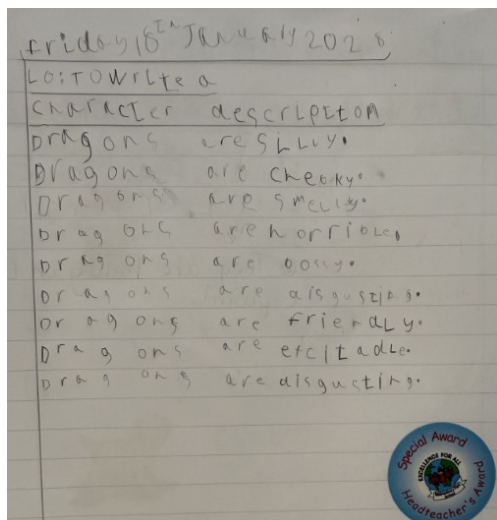 Friday 18th January 2028
LO: TO Write a
character description
Dragons are silly.
Dragons are cheeky.
Dragons are smelly.
Dragons are horrible.
Dragons are bossy.
Dragons are disgusting.
Dragons are friendly.
Dragons are excitable.
Dragons are disgusting.
Special Award
EXCELLENCE FOR ALL
Headteacher's Award